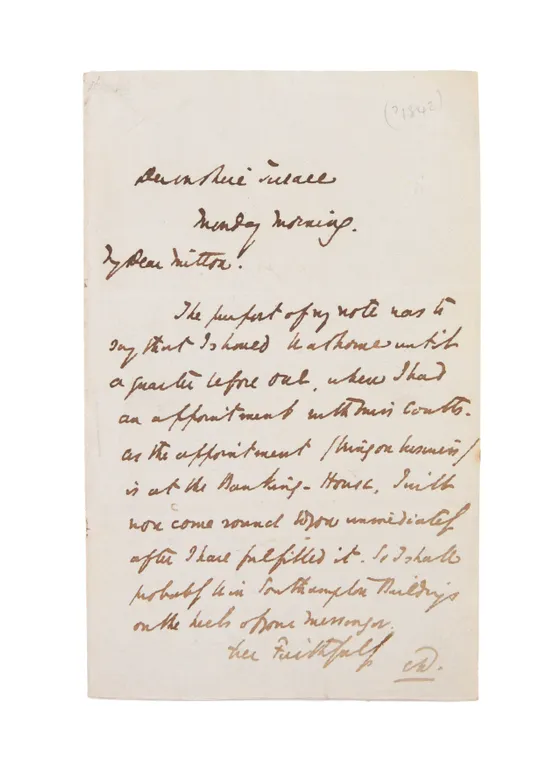 (?1842)
Devonshire Terrace
Monday Morning.
My Dear Mitton.
The purport of my note was to
say that I should be at home until
a quarter before one, when I had
an appointment with Miss Coutts.
as the appointment (being on business)
is at the Banking-House, I will
now come round to you immediately
after I have fulfilled it. So I shall
probably be in Southampton Buildings
on the heels of your messenger.
Faithfully
CD.